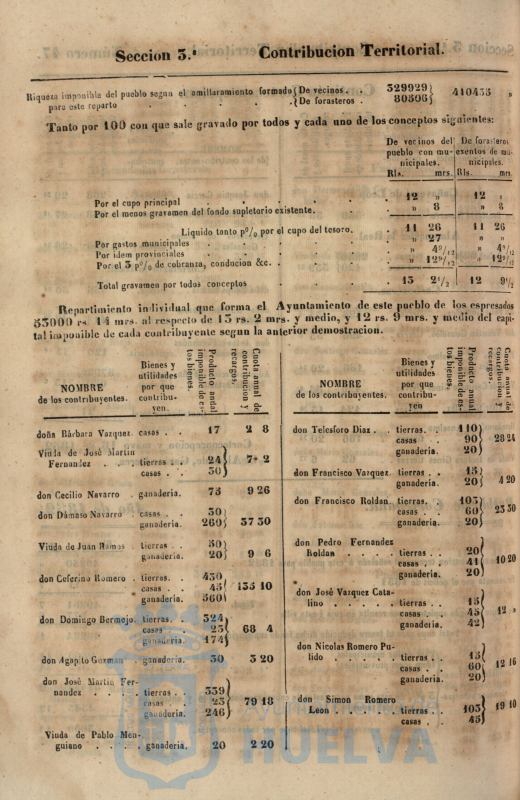 Seccion 3.ª Contribucion Territorial.
Riqueza imponible del pueblo segun el amillaramiento formado {De vecinos . . 329929} 410435 »
para este reparto . . . . {De forasteros . 80506}
Tanto por 100 con que sale gravado por todos y cada uno de los conceptos siguientes:
De vecinos del De forasteros
pueblo con mu- exentos de mu-
nicipales. nicipales.
Rls. mrs. Rls. mrs.
Por el cupo principal . . . . . 12 » 12 »
Por el menos gravamen del fondo supletorio existente. . . » 8 » 8
Líquido tanto p% por el cupo del tesoro. . 11 26 11 26
Por gastos municipales . . . . . » 27 » »
Por idem provinciales . . . . .
Por el 3 p% de cobranza, conducion &c. . . . .
Total gravamen por todos conceptos . . . 13 2½ 12 9½
Repartimiento individual que forma el Ayuntamiento de este pueblo de los espresados
53000 rs. 14 mrs. al respecto de 13 rs. 2 mrs. y medio, y 12 rs. 9 mrs. y medio del capi-
tal imponible de cada contribuyente segun la anterior demostracion.
NOMBRE
de los contribuyentes.
Bienes y
utilidades
por que
contribu-
yen.
Producto anual
imponible de es-
tos bienes.
Cuota anual de
contribucion y
recargos.
doña Bárbara Vazquez. casas . . 17 2 8
Viuda de José Martin
Fernandez . . . tierras . . 24} 7 2
casas . . 30}
don Cecilio Navarro . ganaderia. 73 9 26
don Dámaso Navarro . casas . . 30} 37 30
ganaderia. 260}
Viuda de Juan Ramos . tierras . . 50} 9 6
ganaderia. 20}
don Ceferino Romero . tierras. . 430}
casas . . 45} 135 10
ganaderia. 560}
don Domingo Bermejo. tierras. . 324}
casas . . 23} 68 4
ganaderia. 174}
don Agapito Guzman . ganaderia. 30 3 20
don José Martin Fer-
nandez . . . . tierras . . 339}
casas . . 23} 79 18
ganaderia. 246}
Viuda de Pablo Men-
guiano . . . . ganaderia. 20 2 20
NOMBRE
de los contribuyentes.
Bienes y
utilidades
por que
contribu-
yen
Producto anual
imponible de es-
tos bienes.
Cuota anual de
contribucion y
recargos.
don Telesforo Diaz . . tierras. . 110}
casas . . 90} 28 24
ganaderia. 20}
don Francisco Vazquez. tierras . . 15} 4 20
ganaderia. 20}
don Francisco Roldan. tierras. . 103}
casas . . 60} 23 30
ganaderia. 20}
don Pedro Fernandez
Roldan . . . . tierras . . 20}
casas . . 41} 10 20
ganaderia. 20}
don José Vazquez Cata-
lino . . . . . tierras . . 15}
casas . . 45} 12 »
ganaderia. 42}
don Nicolas Romero Pu-
lido . . . . . tierras . . 15}
casas . . 60} 12 16
ganaderia. 20}
don Simon Romero
Leon . . . . . tierras . . 103} 19 10
casas . . 45}
HUELVA